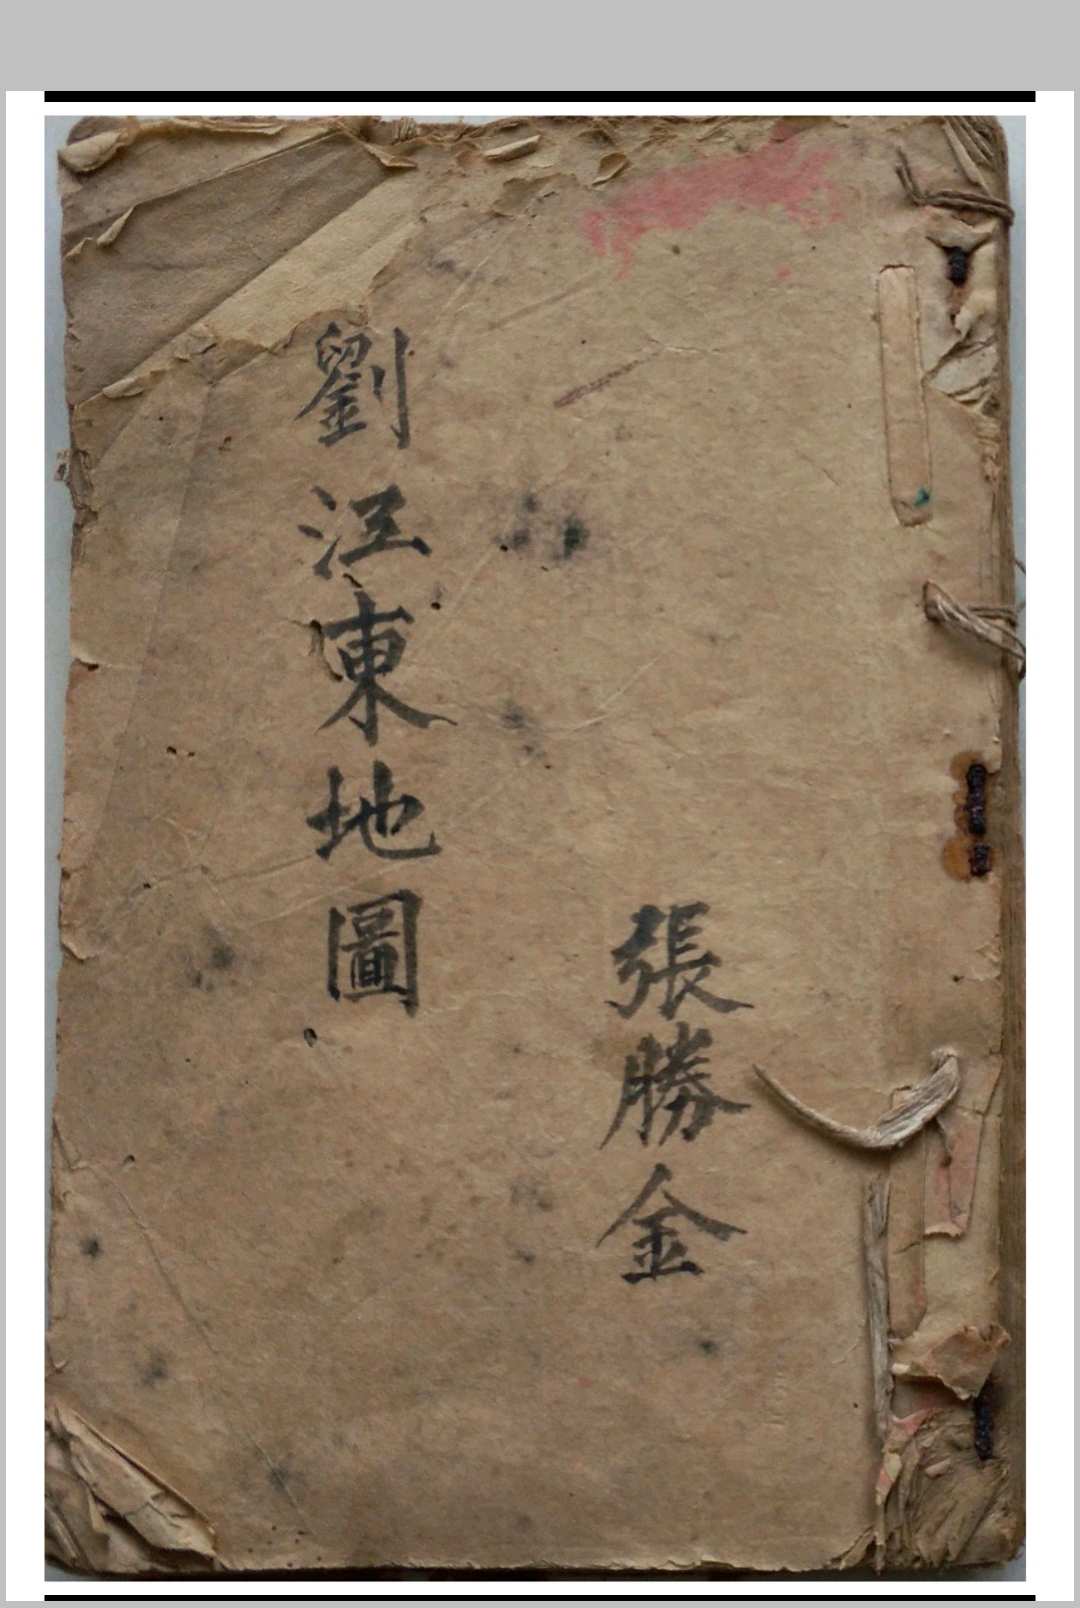 張勝金
劉江東地圖